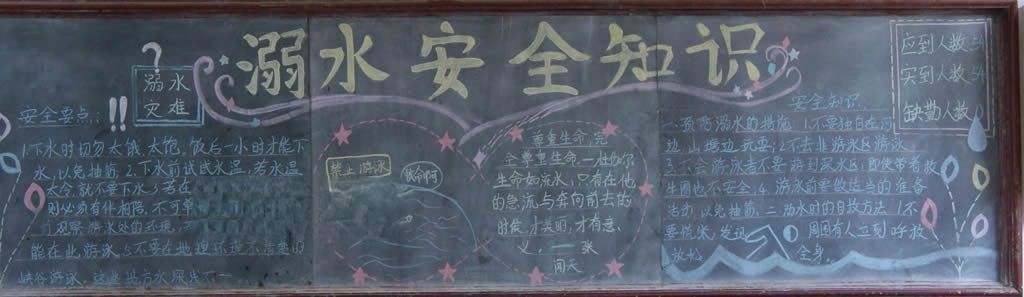 溺水安全知识
?
溺水
灾难
安全要点:
!!
1.下水时切勿太饿、太饱。饭后一小时才能下
水,以免抽筋。2.下水前试试水温,若水温
太冷就不要下水。3.若在
则必须有伴相陪,不可单
前观察游泳处的环境,
能在此游泳。5.不要在地理环境不清楚的
峡谷游泳。这些地方水深浅不一
禁止游泳
救命啊
尊重生命,完
全尊重生命
生命如流水,只有在他
的急流与奔向前去的
时候,才美丽,才有意
义。——张
闻天
安全知识:
一、预防溺水的措施 1.不要独自在河
边、山塘边玩耍;2.不去非游泳区游泳
3.不会游泳者不要游到深水区,即使带着救
生圈也不安全;4.游泳前要做适当的准备
活动,以免抽筋。二、溺水时的自救方法 1.不
要慌张,发现周围有人立刻呼救
放松全身。
应到人数:54
实到人数:54
缺勤人数